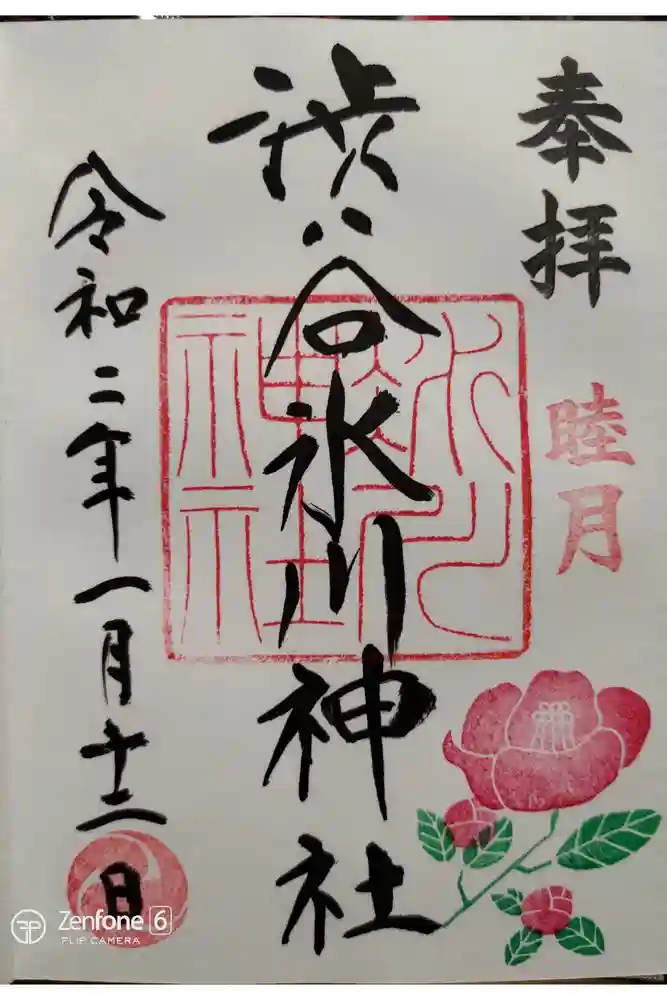 奉拝
睦月
渋谷氷川神社
令和二年一月十二日
Zenfone 6
FLIP CAMERA